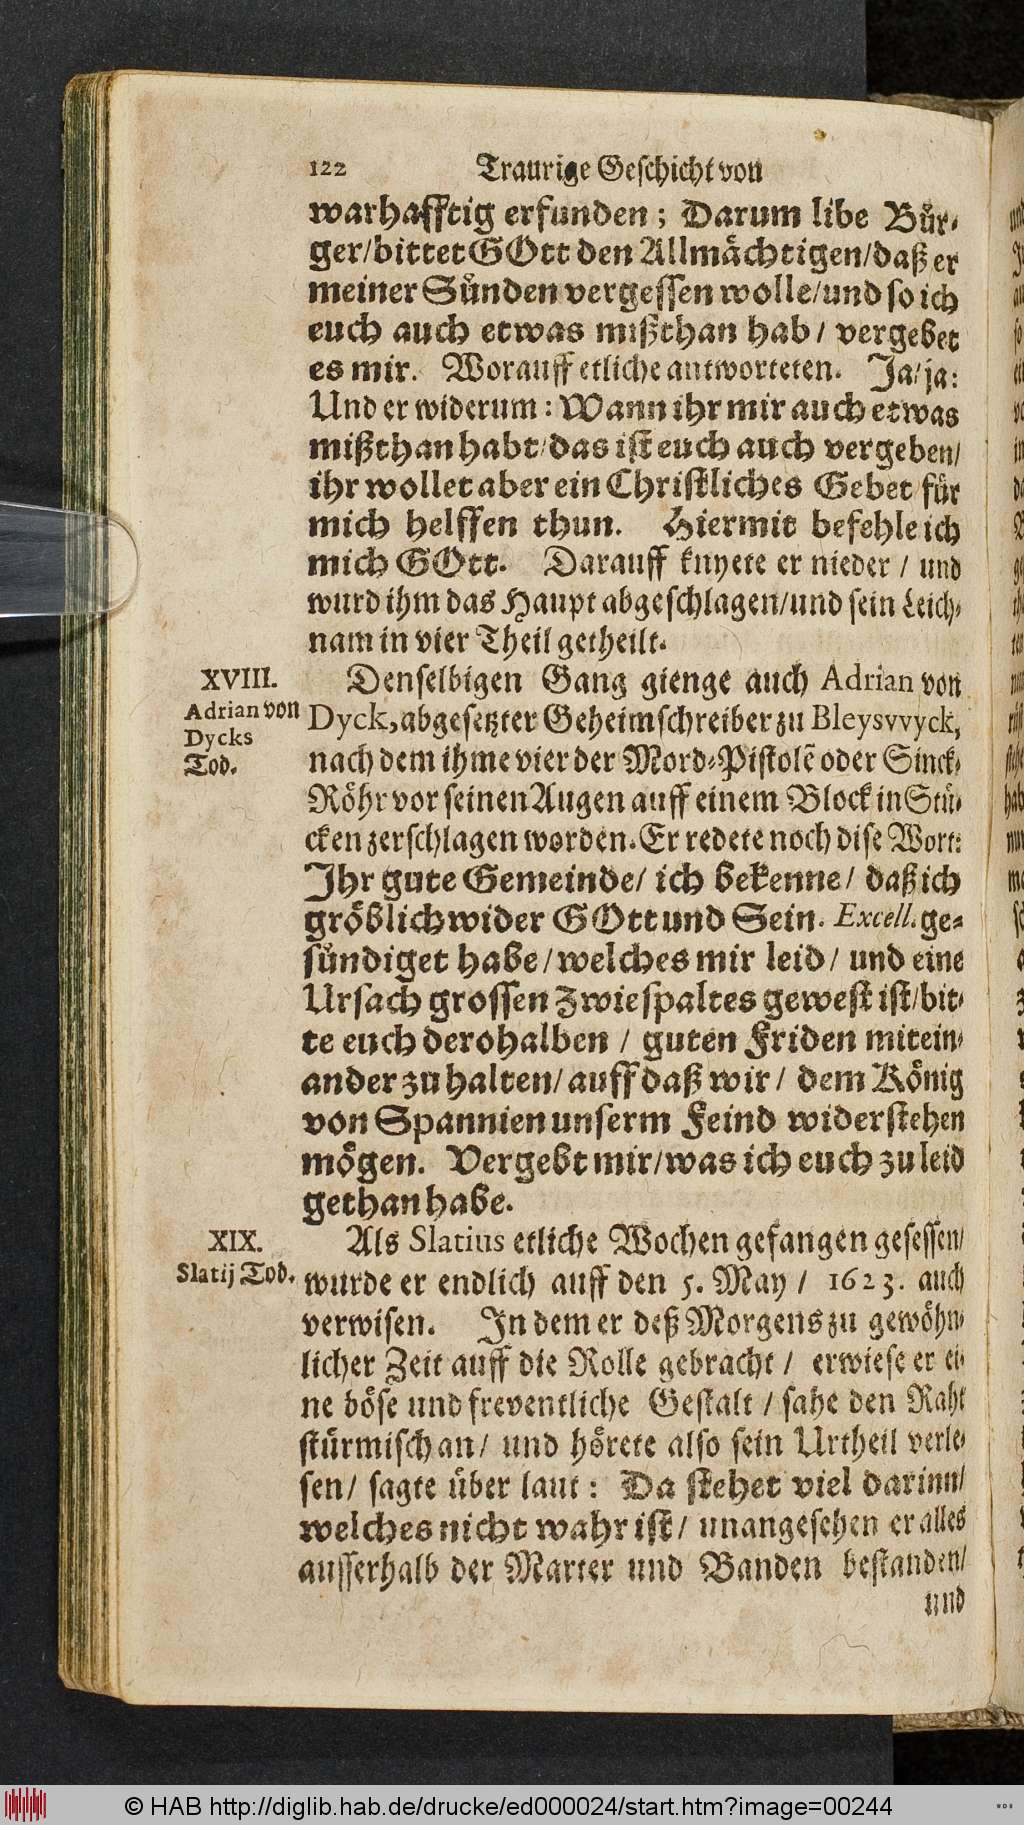 122 Traurige Geschicht von
warhafftig erfunden; Darum libe Bůr-
ger/bittet GOtt den Allmächtigen/daß er
meiner Sůnden vergessen wolle/und so ich
euch auch etwas mißthan hab/ vergebet
es mir. Worauff etliche antworteten. Ja/ja:
Und er widerum: Wann ihr mir auch etwas
mißthan habt/das ist euch auch vergeben/
ihr wollet aber ein Christliches Gebet für
mich helffen thun. Hiermit befehle ich
mich GOtt. Darauff knyete er nieder / und
wurd ihm das Haupt abgeschlagen/und sein Leich-
nam in vier Theil getheilt.
XVIII.
Adrian von
Dycks
Tod.
Denselbigen Gang gienge auch Adrian von
Dyck, abgesetzter Geheimschreiber zu Bleysvvyck,
nach dem ihme vier der Mord-Pistolē oder Sinck-
Röhr vor seinen Augen auff einem Block in Stü-
cken zerschlagen worden. Er redete noch dise Wort:
Ihr gute Gemeinde/ ich bekenne/ daß ich
gröblich wider GOtt und Sein. Excell. ge-
sůndiget habe/welches mir leid/ und eine
Ursach grossen Zwiespaltes gewest ist/bit-
te euch derohalben / guten Friden mitein-
ander zu halten/ auff daß wir/ dem König
von Spannien unserm Feind widerstehen
mögen. Vergebt mir/was ich euch zu leid
gethan habe.
XIX.
Slatij Tod.
Als Slatius etliche Wochen gefangen gesessen/
wurde er endlich auff den 5. May / 1623. auch
verwisen. In dem er deß Morgens zu gewöhn-
licher Zeit auff die Rolle gebracht / erwiese er ei-
ne böse und freventliche Gestalt / sahe den Raht
stürmisch an/ und hörete also sein Urtheil verle-
sen/ sagte über laut: Da stehet viel darinn/
welches nicht wahr ist/ unangesehen er alles
ausserhalb der Marter und Banden bestanden/
und
© HAB http://diglib.hab.de/drucke/ed000024/start.htm?image=00244